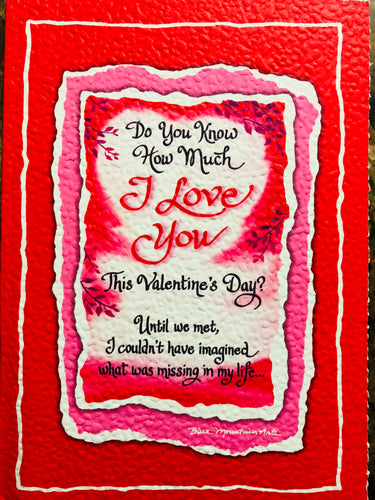 Do You Know
How Much
I Love
You
This Valentine's Day?
Until we met,
I couldn't have imagined
what was missing in my life...
Blue Mountain Arts